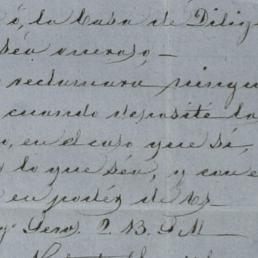 ó, la Casa de Dilig
séa oneroso —
reclamará ningu
cuando deposité la
, en el caso que sí,
lo que séa, y con e
en podér de Us
Serv. Q. B. S. M